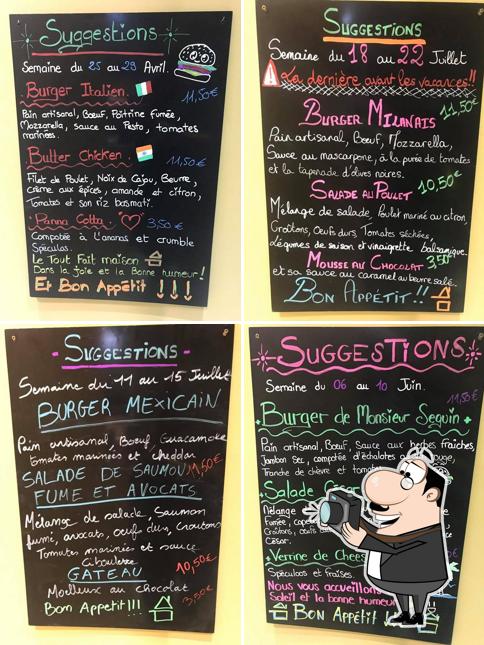 Suggestions
Semaine du 25 au 29 Avril.
Burger Italien.
11,50€
Pain artisanal, Bœuf, Poitrine fumée,
Mozzarella, sauce au Pesto, tomates
marinées.
Butter Chicken.
11,50€
Filet de Poulet, Noix de Cajou, Beurre,
Crème aux épices, amande et citron,
Tomates et son riz basmati.
Panna Cotta.
3,50€
Compotée à l'ananas et crumble
Spéculos.
Le Tout Fait maison
Dans la joie et la Bonne humeur!
Et Bon Appétit !!!
SUGGESTIONS
Semaine du 18 au 22 Juillet
La dernière avant les vacances!!
11,50€
BURGER MILANAIS
Pain artisanal, Bœuf, Mozzarella,
Sauce au mascarpone, à la purée de tomates
et la tapenade d'olives noires.
SALADE AU POULET
10,50€
Mélange de salade, Poulet mariné au citron,
Croûtons, Oeufs durs, Tomates séchées,
Légumes de saison et vinaigrette balsamique.
MOUSSE AU CHOCOLAT 3,50€
et sa sauce au caramel au beurre salé.
BON APPÉTIT!!
- SUGGESTIONS -
Semaine du 11 au 15 Juillet
BURGER MEXICAIN
Pain artisanal, Bœuf, Guacamole
Tomates marinées et cheddar
11,50€
SALADE DE SAUMON
FUME ET AVOCATS
Mélange de salade, Saumon
fumé, avocats, oeufs durs, Croutons
Tomates marinées et sauce
Ciboulette
10,50€
GATEAU
Moelleux au chocolat
3,50€
Bon Appetit!!!
SUGGESTIONS
Semaine du 06 au 10 Juin.
11,50€
Burger de Monsieur Seguin
Pain artisanal, Bœuf, Sauce aux herbes fraîches,
Jambon Sec, compotée d'échalotes
Tranche de chèvre et
Salade
Mélange
Fumée,
Croûtons, oeufs
César.
Verrine de Chees
Spéculoos et fraises.
Nous vous accueillons
Soleil et la bonne humeur
BON APPÉTIT